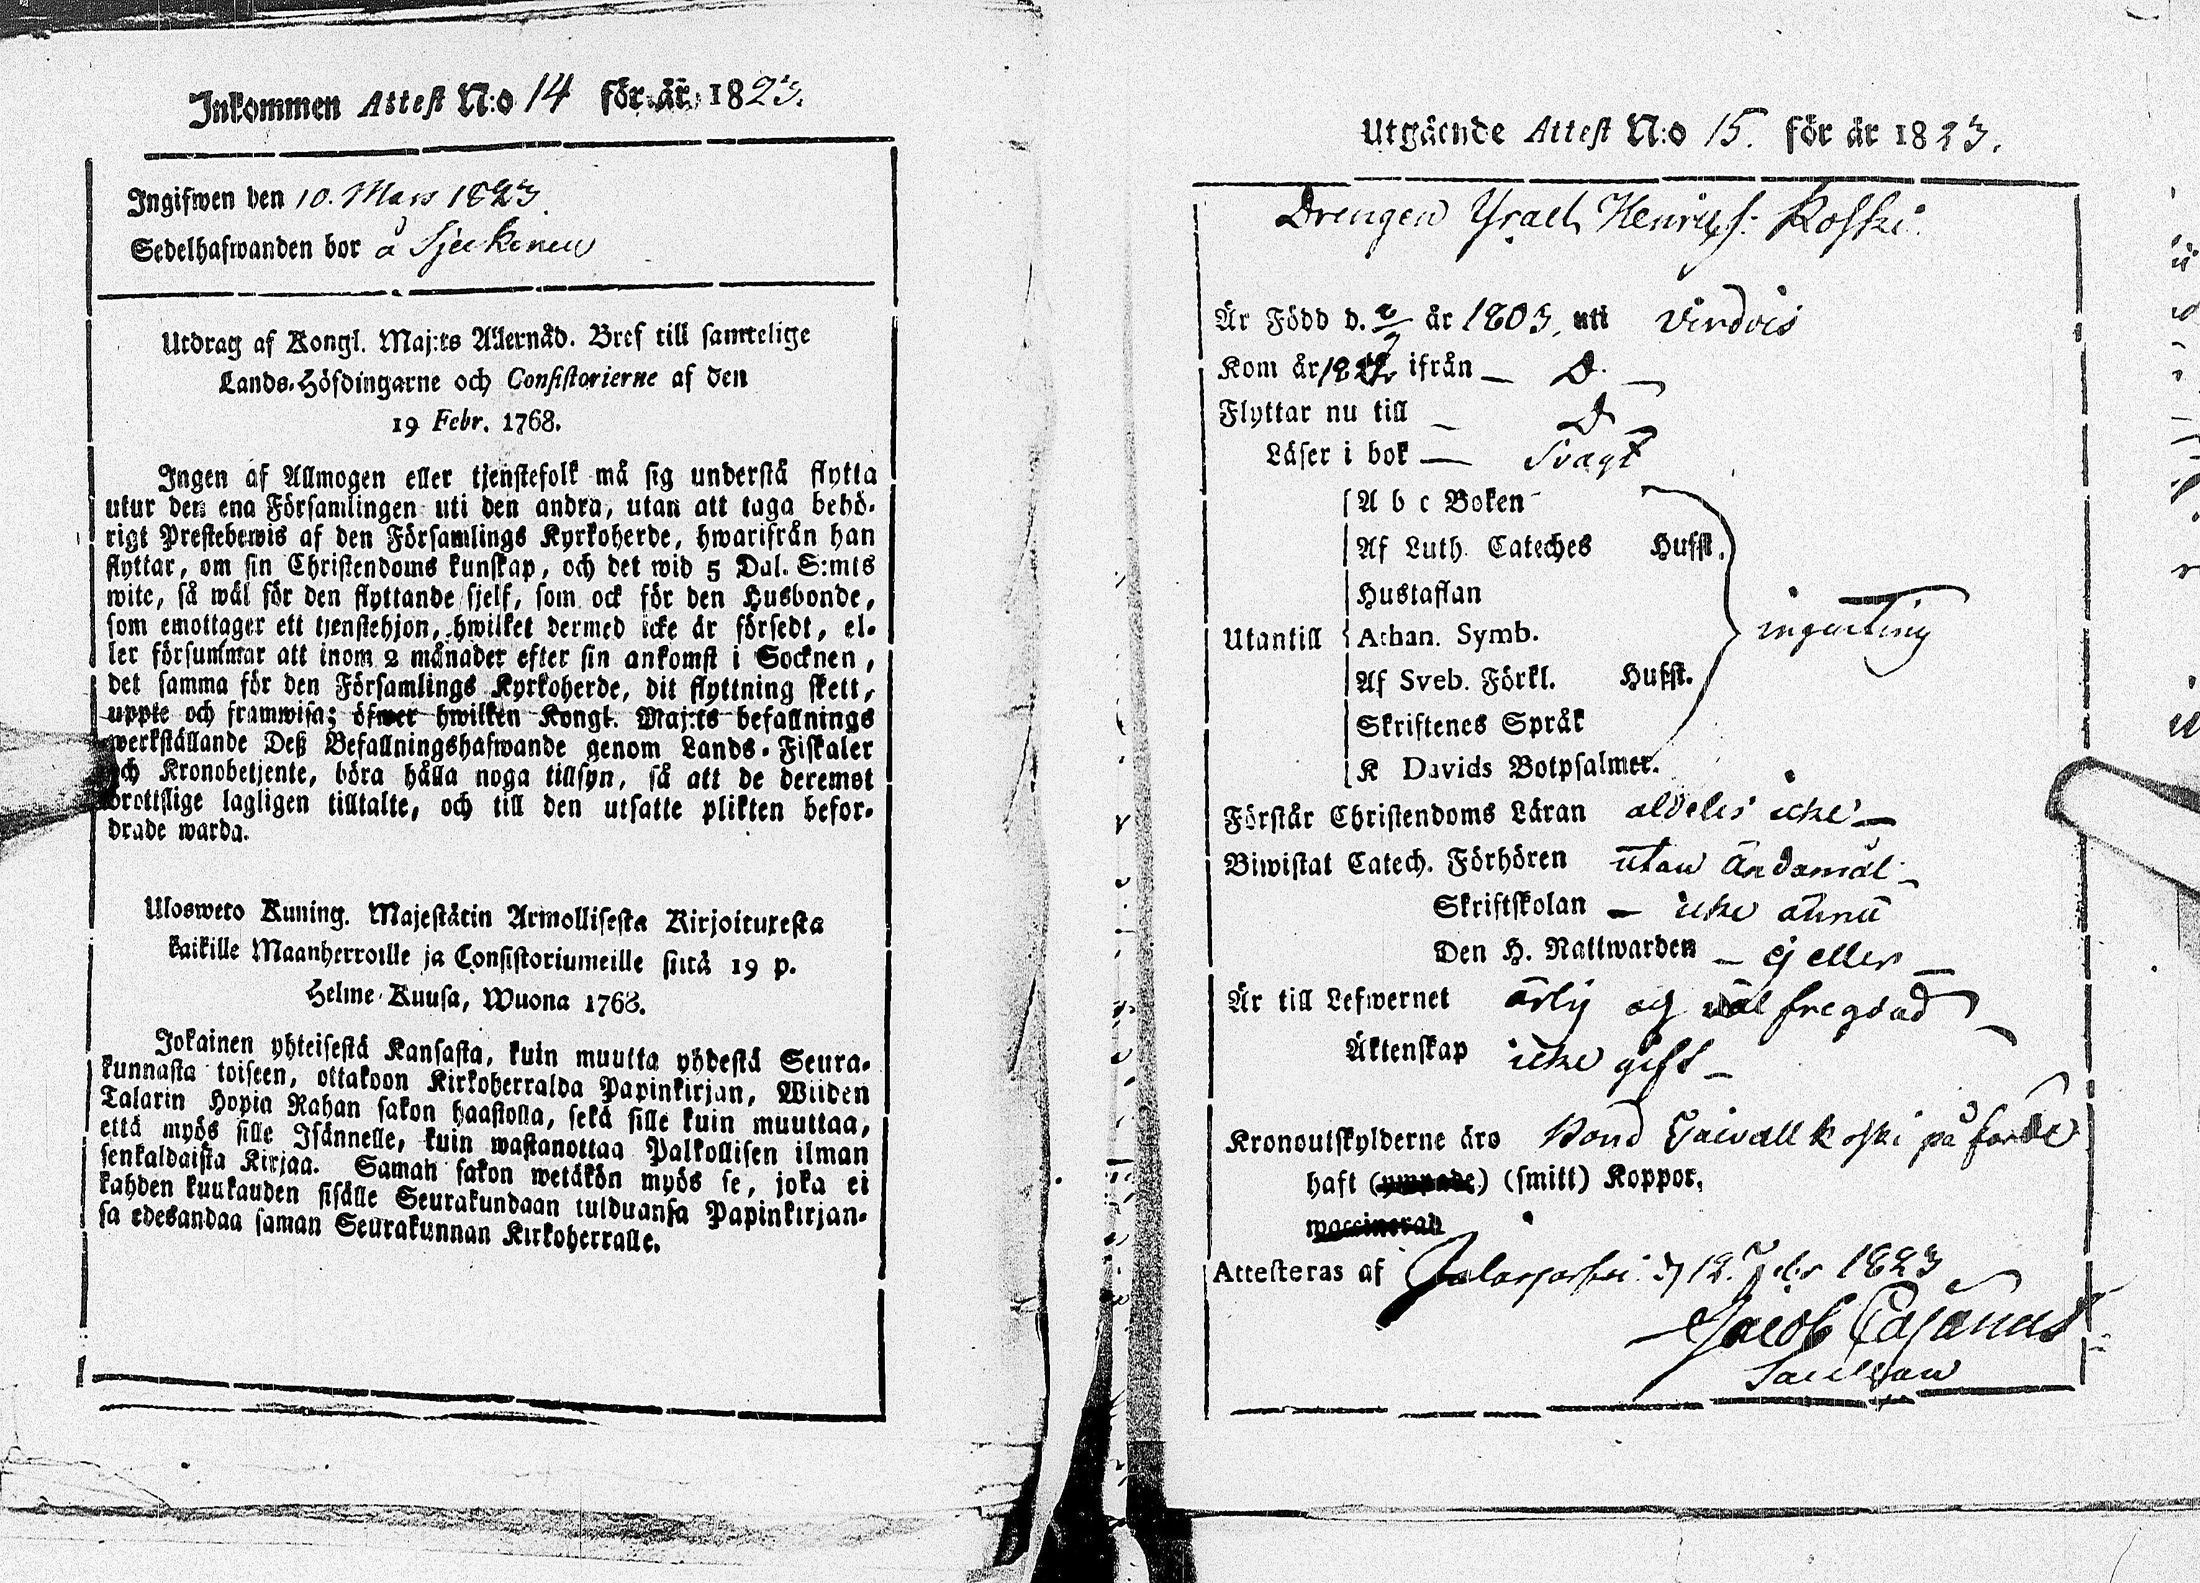 Inkommen Attest N:o 14 för år 1823.
Ingifwen den 10. Mars 1823
Sedelhafwanden bor å
Utdrag af Kongl. Maj:ts Allernåd. Bref till samtelige
Lands-Höfdingarne och Consistorierne af den
19 Febr. 1768.
Ingen af Allmogen eller tjenstefolk må sig understå flytta
utur den ena Församlingen uti den andra, utan att taga behö-
rigt Prestebewis af den Församlings Kyrkoherde, hwarifrån han
flyttar, om sin Christendoms kunskap, och det wid 5 Dal. S:mts
wite, så wäl för den flyttande sjelf, som ock för den Husbonde,
som emottager ett tjenstehjon, hwilket dermed icke är försedt, el-
ler försummar att inom 2 månader efter sin ankomst i Socknen,
det samma för den Församlings Kyrkoherde, dit flyttning skett,
uppte och framwisa; öfwer hwilken Kongl. Maj:ts befallnings
werkställande Deß Befallningshafwande genom Lands-Fiskaler
och Kronobetjente, böra hålla noga tillsyn, så att de deremot
brottslige lagligen tilltalte, och till den utsatte plikten befor-
drade warda.
Ulosweto Kuning. Majestätin Armollisesta Kirjoituxesta
kaikille Maanherroille ja Consistoriumeille siitä 19 p.
Helme-Kuusa, Wuona 1768.
Jokainen yhteisestä Kansasta, kuin muutta yhdestä Seura-
kunnasta toiseen, ottakoon Kirkoherralda Papinkirjan, Wiiden
Talarin Hopia Rahan sakon haastolla, sekä sille kuin muuttaa,
että myös sille Isännelle, kuin wastanottaa Palkollisen ilman
senkaldaista Kirjaa. Saman sakon wetäkön myös se, joka ei
kahden kuukauden sisälle Seurakundaan tulduansa Papinkirjan-
sa edesandaa saman Seurakunnan Kirkoherralle.
Utgående Attest N:o 15. för år 1823.
Drengen Israel Henrichs: Koski.
Är Född d. år 1803, uti Virdois
Kom år ifrån — D. —
Flyttar nu till — D
Läser i bok — Svagt
A b c Boken
Af Luth. Cateches Hufst.
Hustaflan
Utantill Athan. Symb. ingenting
Af Sveb. Förkl. Hufst.
Skriftenes Språk
K Davids Botpsalmer.
Förstår Christendoms Läran aldeles icke —
Biwistat Catech. Förhören utan Ändamål —
Skriftskolan — icke ännu
Den H. Nattwarden — ej eller —
Är till Lefwernet ärlig och väl fregdad —
Äktenskap icke gift —
Kronoutskylderne äro koski på
haft (ympade) (smitt) Koppor,
waccinerad
Attesteras af d 12. Febr 1823
Jacob Cajanus